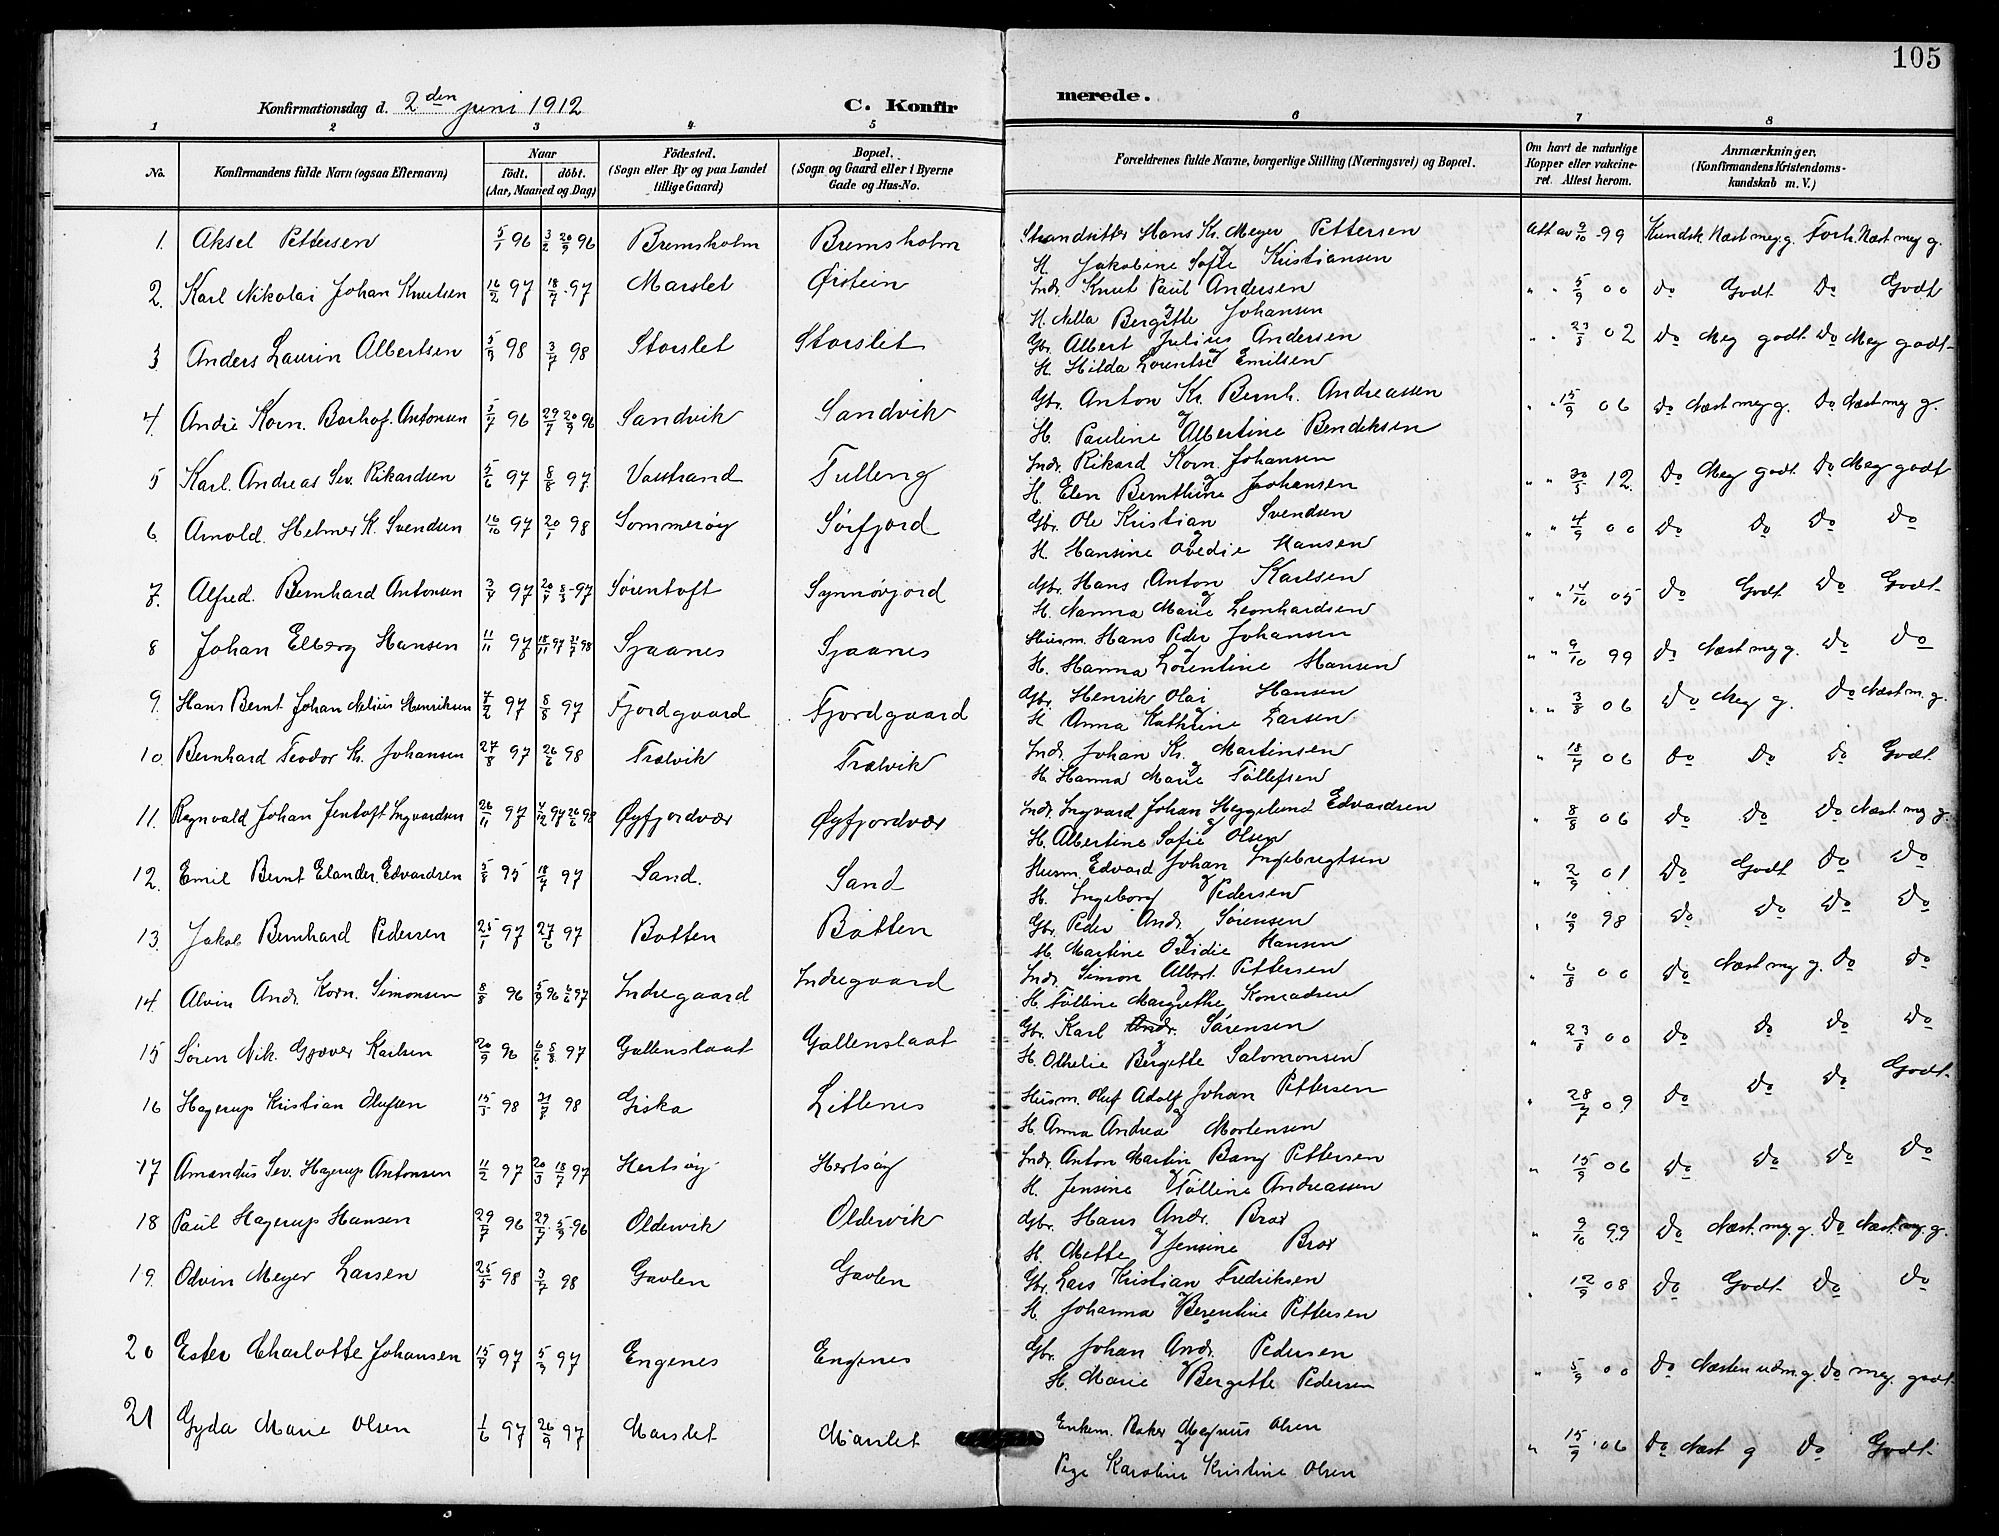 105
Konfirmationsdag d. 2den juni 1912 C. Konfirmerede.
1 2 3 4 5 6 7 8
No. Konfirmandens fulde Navn (ogsaa Efternavn) Naar födt. döbt. (Aar, Maaned og Dag) Födested. (Sogn eller By og paa Landet tillige Gaard) Bopæl. (Sogn og Gaard eller i Byerne Gade og Hus-No. Forældrenes fulde Navne, borgerlige Stilling (Næringsvei) og Bopæl. Om havt de naturlige Kopper eller vakcineret. Attest herom. Anmærkninger. (Konfirmandens Kristendomskundskab m. V.)
1. Aksel Pettersen 5/1 96 3/2 20/9 96 Bremsholm Bremsholm Strandsitter Hans Kr. Meyer Pettersen Att av 9/10 99 Kundsk. Næst meg. g. Forh. Næst meg g.
og H. Jakobine Sofie Kristiansen
2. Karl Nikolai Johan Knutsen 16/2 97 18/7 97 Marslet Øistein Indr. Knut Paul Andersen " " 5/9 00 do Godt Do Godt
og H. Nella Bergitte Johansen
3 Anders Laurin Albertsen 5/3 98 3/7 98 Storslet Storslet Gbr. Albert Julius Andersen " " 23/8 02 do Meg godt Do Meg godt
og H. Hilda Lorentse Emilsen
4. Andre Korn. Barhof. Antonsen 5/7 96 29/7 20/9 96 Sandvik Sandvik Gbr. Anton Kr. Bernh. Andreassen " " 15/9 06 do Næst meg g. Do Næst meg g.
og H. Pauline Albertine Bendiksen
5 Karl. Andreas Sev. Rikardsen 5/6 97 8/8 97 Vastrand Tulleng Indr. Rikard Korn. Johansen " " 30/3 12. Do Meg godt. Do Meg godt
og H. Elen Bernthine Johansen
6. Arnold. Helmer K. Svendsen 16/10 97 20/1 98 Sommerøy Sørfjord Gbr. Ole Kristian Svendsen " 4/9 00 Do Do Do Do
og H. Hansine Ovedie Hansen
7. Alfred. Bernhard Antonsen 3/4 97 20/4 8/8 97 Sørentoft Synnøvjord Gbr. Hans Anton Karlsen " " 14/10 05 Do Godt Do Godt
og H. Nanna Marie Leonhardsen
8 Johan Elberg Hansen 11/11 97 18/11 97 31/7 98 Sjaanes Sjaanes Husm. Hans Peder Johansen " " 9/10 99 Do Næst meg g. Do Do
og H. Hanna Lorentine Hansen
9. Hans Bernt Johan Nelius Henriksen 7/2 97 8/8 97 Fjordgaard Fjordgaard Gbr. Henrik Olai Hansen " " 3/8 06 Do Meg g. Do Næst m. g.
og H Anna Kathrine Larsen
10. Bernhard Teodor Kr. Johansen 27/8 97 26/6 98 Trælvik Trælvik Indr. Johan Kr. Martinsen " 18/7 06 Do Do Do Godt
og H. Hanna Marie Tollefsen
11. Ragnvald Johan Jentoft Ingvardsen 26/11 97 4/12 97 26/6 98 Øyfjordvær Øyfjordvær Indr. Ingvard Johan Heggelund Edvardsen " 8/8 06 Do Do Do Næst meg g.
og H. Albertine Sofie Olsen
12. Emil Bernt Elander. Edvardsen 5/8 95 18/7 97 Sand. Sand Husm. Edvard Johan Ingebrigtsen " 2/9 01 Do Godt Do Do
og H. Ingeborg Pedersen
13. Jakob Bernhard Pedersen 25/1 97 27/6 97 Botten Botten Gbr. Peder Andr. Sørensen " 10/9 98 Do Do Do Do
og H. Martine Ovidie Hansen
14. Alvin Andr. Korn. Simonsen 8/8 96 5/9 96 6/6 97 Indregaard Indregaard Indr. Simon Albert Pettersen " 6/8 00 Do Næst meg g. Do Do
og H. Tolline Margrethe Konradsen
15 Søren Nik. Gjæver Karlsen 20/9 96 6/6 8/8 97 Gallenslaat Gallenslaat Gbr. Karl Andr. Sørensen " 23/8 00 Do Do Do Do
og H. Othelie Bergitte Salomonsen
16 Hagerup Kristian Olufsen 15/5 98 98 Giska Litlenes Husm. Oluf Adolf Johan Pettersen " 28/7 09 Do Do Do Godt.
og H. Anna Andrea Mortensen
17 Amandus Sev. Hagerup Antonsen 11/2 97 20/3 18/7 97 Hertsøy Hertsøy Indr. Anton Martin Bang Pettersen " 15/9 06 Do Do Do Do
og H. Jensine Tolline Andreassen
18 Paul Hagerup Hansen 29/7 96 29/7 5/9 96 Oldervik Oldervik Gbr. Hans Andr. Brox " 9/10 99 Do Næst meg. g. Do Næst. meg. g.
og H. Mette Jensine Brox
19. Odvin Meyer Larsen 25/5 98 3/7 98 Gavlen Gavlen Gbr. Lars Kristian Fredriksen " 12/9 08 Do Godt Do Do
og H. Johanna Berentine Pettersen
20 Ester Charlotte Johansen 15/7 97 5/9 97 Engenes Engenes Gbr. Johan Andr. Pedersen " 5/9 00 Do Næsten udm. g. Do meg. godt.
og H. Marie Bergitte Pedersen
21 Gyda Marie Olsen 1/6 97 26/9 97 Marslet Marslet Enkem. Baker Magnus Olsen " 15/9 06 Do Næst g Do Godt.
og Pige Karoline Kristine Olsen